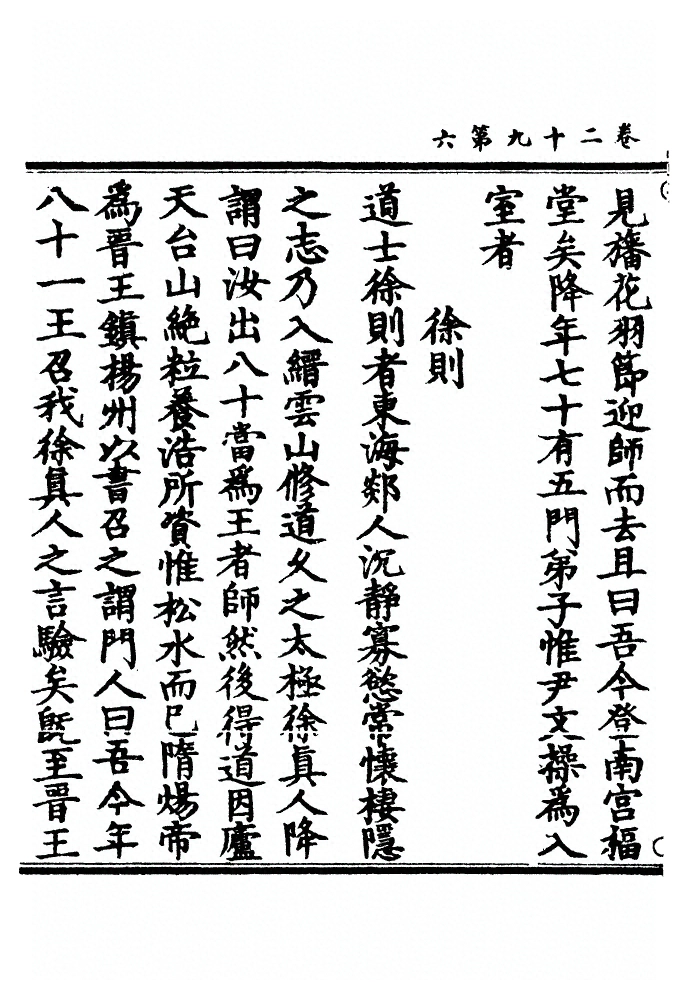 卷二十九第六
見旛花羽節迎師而去且曰吾今登南宮福
堂矣降年七十有五門弟子惟尹文操為入
室者
徐則
道士徐則者東海郯人沉靜寡慾常懷棲隱
之志乃入縉雲山修道久之太極徐眞人降
謂曰汝出八十當為王者師然後得道因廬
天台山絶粒養浩所資惟松水而已隋煬帝
為晉王鎮楊州以書召之謂門人曰吾今年
八十一王召我徐眞人之言驗矣旣至晉王